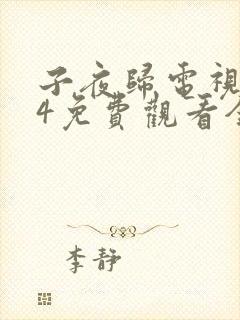 子夜歸電視
4免費觀看全
李靜